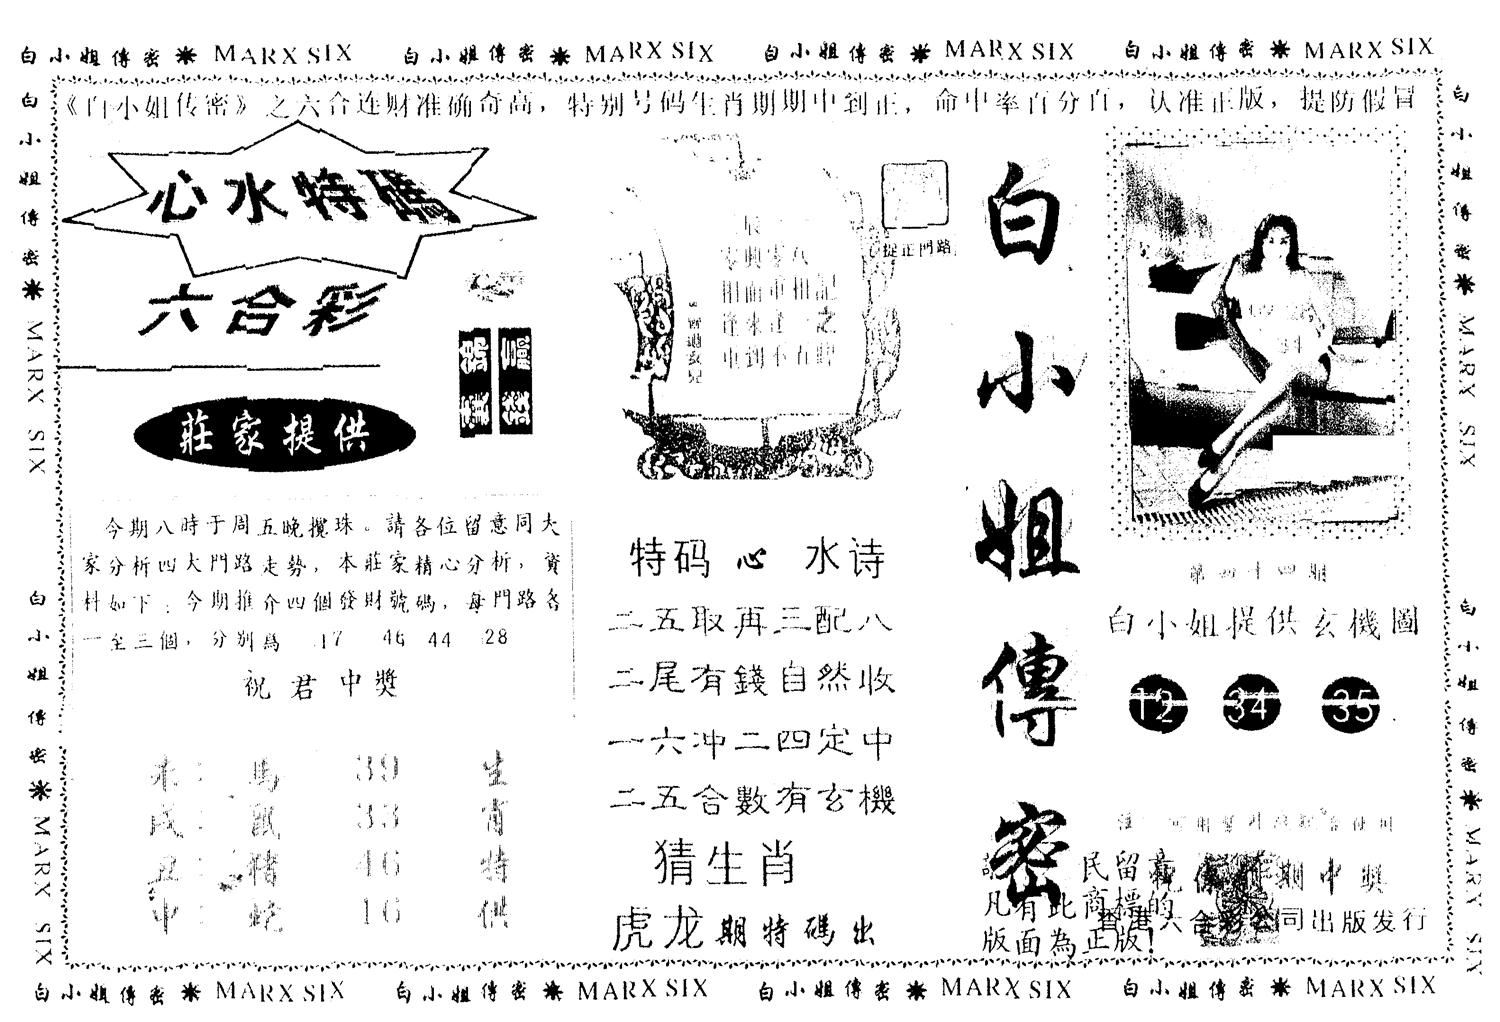 白小姐傳密 MARX SIX 白小姐傳密 MARX SIX 白小姐傳密 MARX SIX 白小姐傳密 MARX SIX
《白小姐传密》之六合连财准确奇高，特别号码生肖期期中到正，命中率百分百，认准正版，提防假冒
心水特碼
六合彩
莊家提供
今期八時于周五晚攪珠。請各位留意同大
家分析四大門路走勢，本莊家精心分析，資
料如下：今期推介四個發財號碼，每門路各
一至三個，分别為 17 46 44 28
祝君中獎
未：馬 39 生
戌：鼠 33 肖
丑：猪 46 特
申：蛇 16 供
捉正門路
特码心水诗
二五取再三配八
二尾有錢自然收
一六冲二四定中
二五合數有玄機
猜生肖
虎龙期特碼出
白小姐傳密
第四十四期
白小姐提供玄機圖
12 34 35
民留意
凡有此商標的
版面為正版！
期中獎
香港六合彩公司出版发行
白小姐傳密 MARX SIX 白小姐傳密 MARX SIX
白小姐傳密 MARX SIX 白小姐傳密 MARX SIX
白小姐傳密 MARX SIX 白小姐傳密 MARX SIX 白小姐傳密 MARX SIX 白小姐傳密 MARX SIX